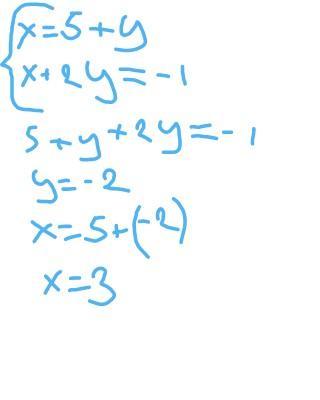 x=5+y
x+2y=-1
5+y+2y=-1
y=-2
x=5+(-2)
x=3